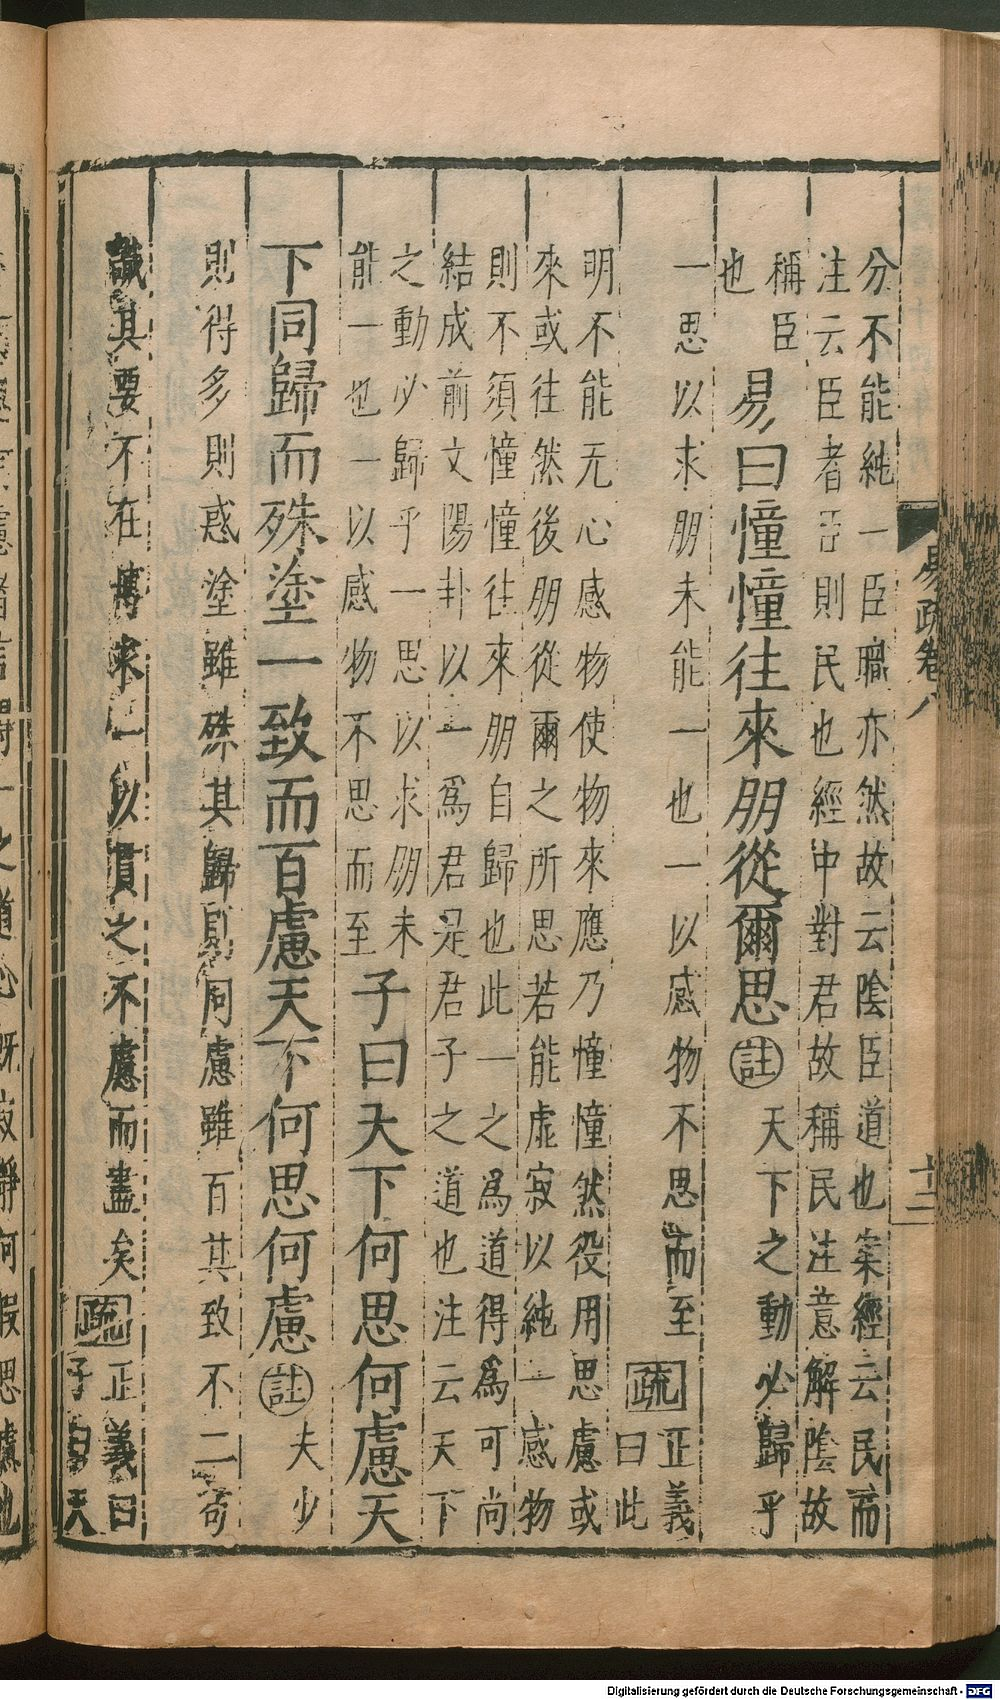 易疏卷八
十二
分不能純一臣職亦然故云陰臣道也案經云民而
注云臣者臣則民也經中對君故稱民注意解陰故
稱臣
也
易曰憧憧往來朋從爾思註天下之動必歸乎
一思以求朋未能一也一以感物不思而至疏正義
曰此
明不能无心感物使物來應乃憧憧然役用思慮或
來或往然後朋從爾之所思若能虛寂以純一感物
則不須憧憧往來朋自歸也此一之爲道得爲可尚
結成前文陽卦以一爲君是君子之道也注云天下
之動必歸乎一思以求朋未
能一也一以感物不思而至
子曰天下何思何慮天
下同歸而殊塗一致而百慮天下何思何慮註夫少
則得多則惑塗雖殊其歸則同慮雖百其致不二苟
識其要不在博求一以貫之不慮而盡矣疏正義曰
子曰天
之道心既寂靜何假思慮也
Digitalisierung gefördert durch die Deutsche Forschungsgemeinschaft - DFG